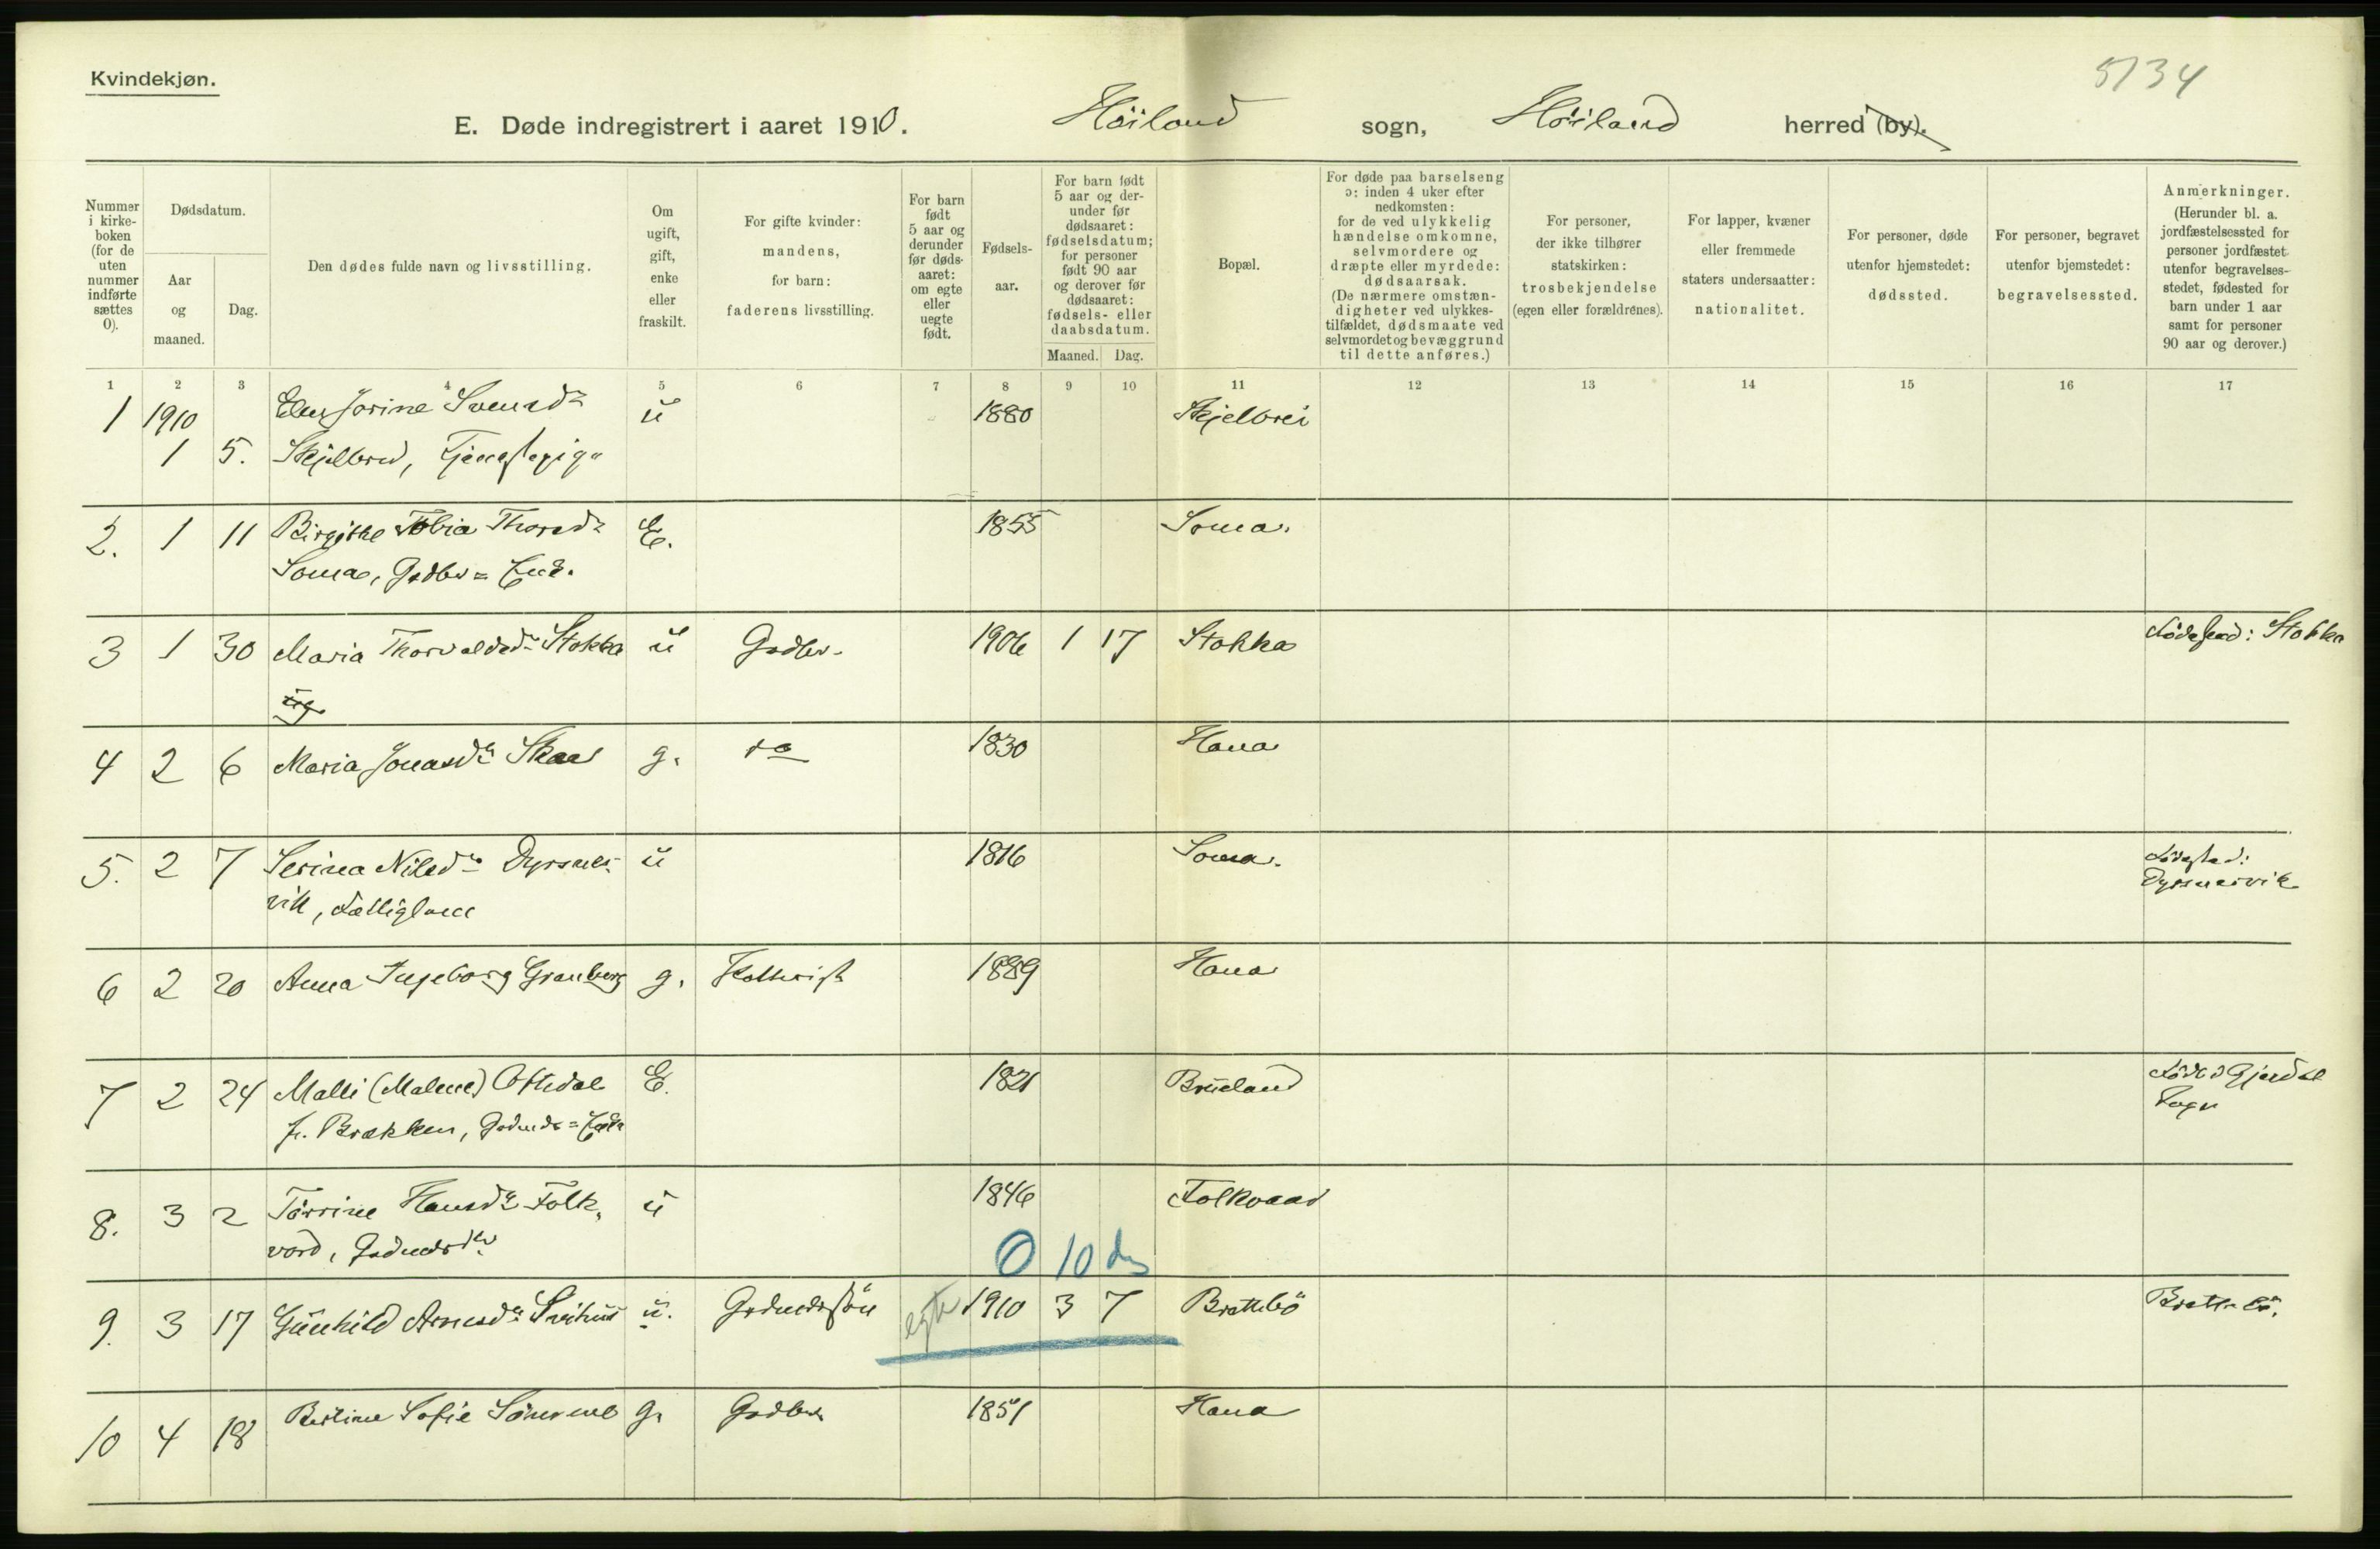 Kvindekjøn.
5134
E. Døde indregistrert i aaret 1910. Höiland sogn, Höiland herred (by).
Nummer i kirke-boken (for de uten nummer indførte sættes 0).
Dødsdatum.
Aar og maaned.
Dag.
Den dødes fulde navn og livsstilling.
Om ugift, gift, enke eller fraskilt.
For gifte kvinder: mandens, for barn: faderens livsstilling.
For barn født 5 aar og derunder før døds-aaret: om egte eller uegte født.
Fødsels-aar.
For barn født 5 aar og der-under før dødsaaret: fødselsdatum; for personer født 90 aar og derover før dødsaaret: fødsels- eller daabsdatum.
Maaned. Dag.
Bopæl.
For døde paa barselseng ɔ: inden 4 uker efter nedkomsten: for de ved ulykkelig hændelse omkomne, selvmordere og dræpte eller myrdede: dødsaarsak. (De nærmere omstæn-digheter ved ulykkes-tilfældet, dødsmaate ved selvmordet og bevæggrund til dette anføres.)
For personer, der ikke tilhører statskirken: trosbekjendelse (egen eller forældrenes).
For lapper, kvæner eller fremmede staters undersaatter: nationalitet.
For personer, døde utenfor hjemstedet: dødssted.
For personer, begravet utenfor bjemstedet: begravelsessted.
Anmerkninger. (Herunder bl. a. jordfæstelsessted for personer jordfæstet utenfor begravelses-stedet, fødested for barn under 1 aar samt for personer 90 aar og derover.)
1 2 3 4 5 6 7 8 9 10 11 12 13 14 15 16 17
1 1910 Jorine Svensd. ü 1880 Skjelbrei
1 5. Skjelbred,
2. 1 11 Birgithe Tobia Thorsd. E. 1855 Soma.
Soma, Gdbr= Enk.
3 1 30 Maria Thorvaldsd. Stokka ü Gdbr. 1906 1 17 Stokka Födested: Stokka
4 2 6 Maria Jonasd. Skaar g. do 1830 Hana
5. 2 7 Serina Nilsd. Dyrsnes- ü 1816 Soma. Födested:
vik, Fattiglem Dyrsnesvik
6 2 20 Anna Ingeborg Granberg g. 1889 Hana
7 2 24 Malli (Malene) Oftedal E. 1821 Brüeland Gjesdal
f. Brækken, Sogn
8. 3 2 Törrine Hansd. Folk- ü 1846 Folkvaard
vord,
0 10 ds
9. 3 17 Günhild Arnesd. ü. Gdmdssön egte 1910 3 7 Brattebö Brattebö.
10 4 18 Bertine Sofie g. Gdbr. 1851 Hana